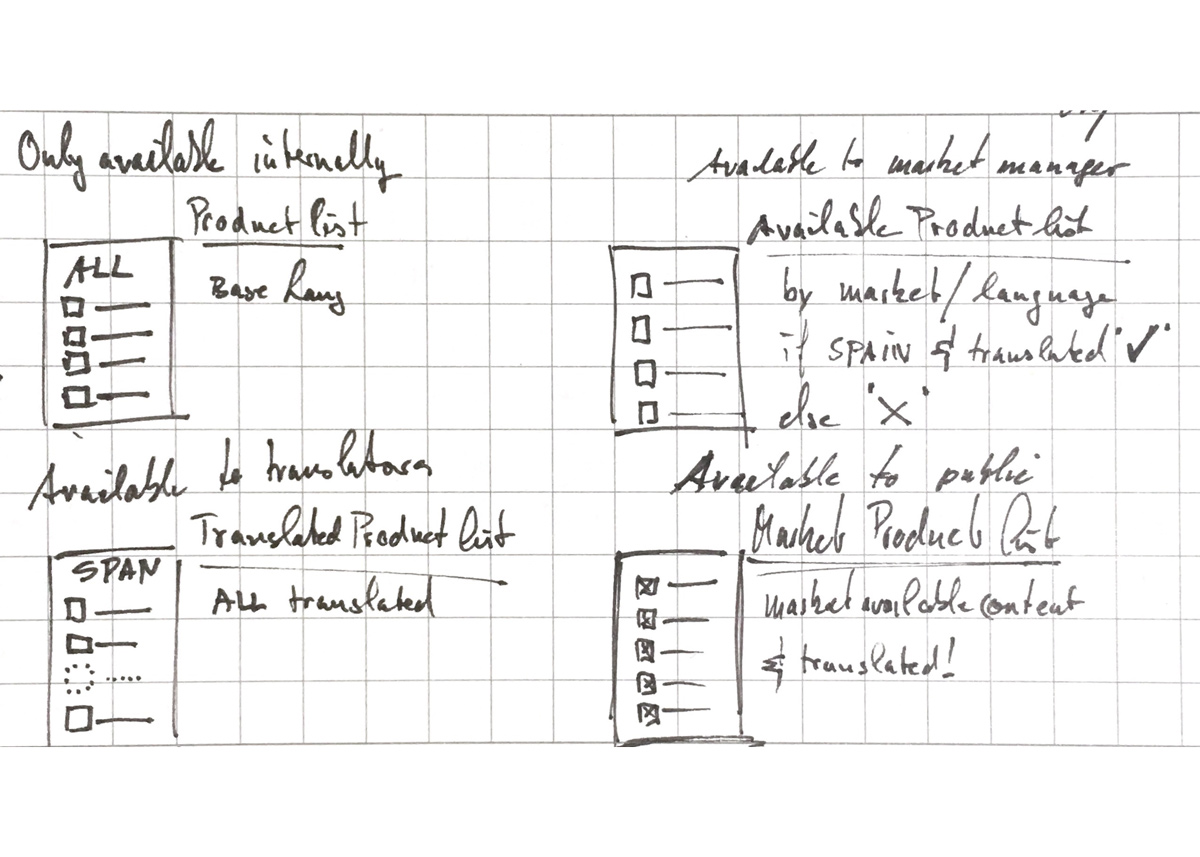 Only available internally
Product list
ALL
Base Lang
Available to market manager
Available Product list
by market/language
if SPAIN & translated "✓"
else "X"
Available to translators
Translated Product list
SPAN
ALL translated
Available to public
Market Product list
market available content
& translated!